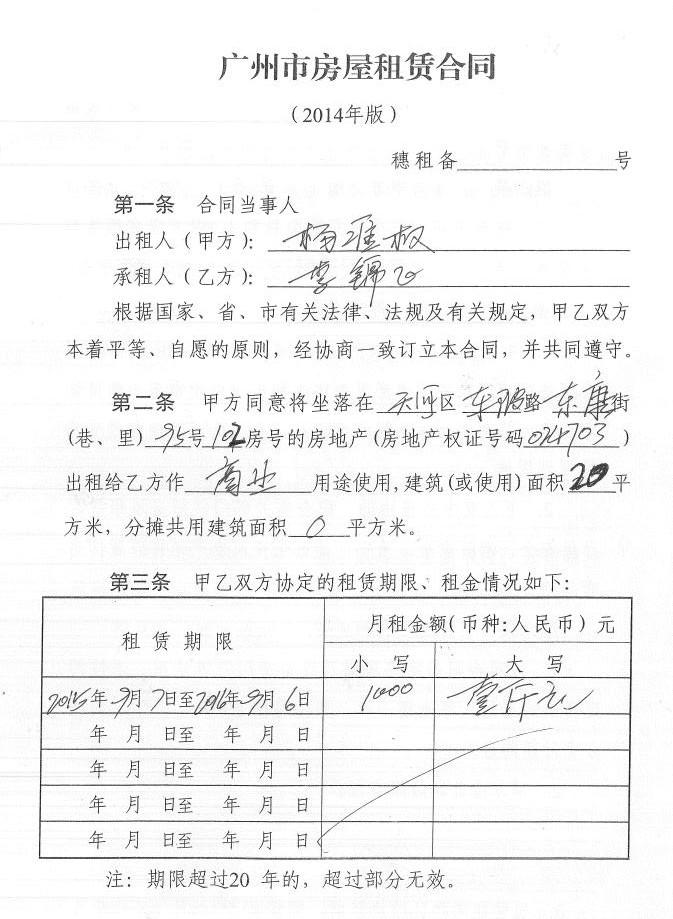 广州市房屋租赁合同
（2014年版）
穗租备 号
第一条 合同当事人
出租人（甲方）：杨淮椒
承租人（乙方）：李锦
根据国家、省、市有关法律、法规及有关规定，甲乙双方
本着平等、自愿的原则，经协商一致订立本合同，并共同遵守。
第二条 甲方同意将坐落在 天河区 车陂路 东康街
(巷、里) 95号 102房号的房地产(房地产权证号码 024703 )
出租给乙方作 商业 用途使用, 建筑(或使用)面积 20 平
方米，分摊共用建筑面积 0 平方米。
第三条 甲乙双方协定的租赁期限、租金情况如下：
租赁期限 月租金额(币种:人民币) 元
小写 大写
2015年9月7日至2016年9月6日 1000 壹仟元
年 月 日至 年 月 日
年 月 日至 年 月 日
年 月 日至 年 月 日
年 月 日至 年 月 日
注：期限超过20 年的，超过部分无效。